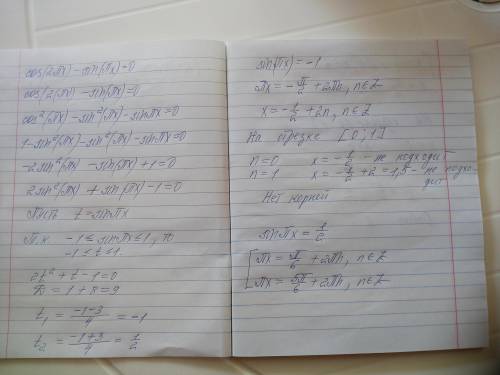 cos(2πx) - sin(πx) = 0
cos(2(πx)) - sin(πx) = 0
cos²(πx) - sin²(πx) - sinπx = 0
1 - sin²(πx) - sin²(πx) - sinπx = 0
-2sin²(πx) - sin(πx) + 1 = 0
2sin²(πx) + sin(πx) - 1 = 0
Пусть t = sinπx
Т.к. -1 ≤ sinπx ≤ 1, то
-1 ≤ t ≤ 1.
2t² + t - 1 = 0
D = 1 + 8 = 9
t₁ = (-1-3)/4 = -1
t₂ = (-1+3)/4 = 1/2
sin(πx) = -1
πx = -π/2 + 2πn, n∈Z
x = -1/2 + 2n, n∈Z
На отрезке [0;1]
n=0 x = -1/2 - не подходит
n=1 x = -1/2 + 2 = 1,5 - не подхо-
дит
Нет корней
sinπx = 1/2
[ πx = π/6 + 2πn, n∈Z
πx = 5π/6 + 2πn, n∈Z